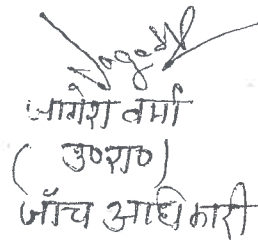 जागेश वर्मा
(उ०रा०)
जाँच अधिकारी